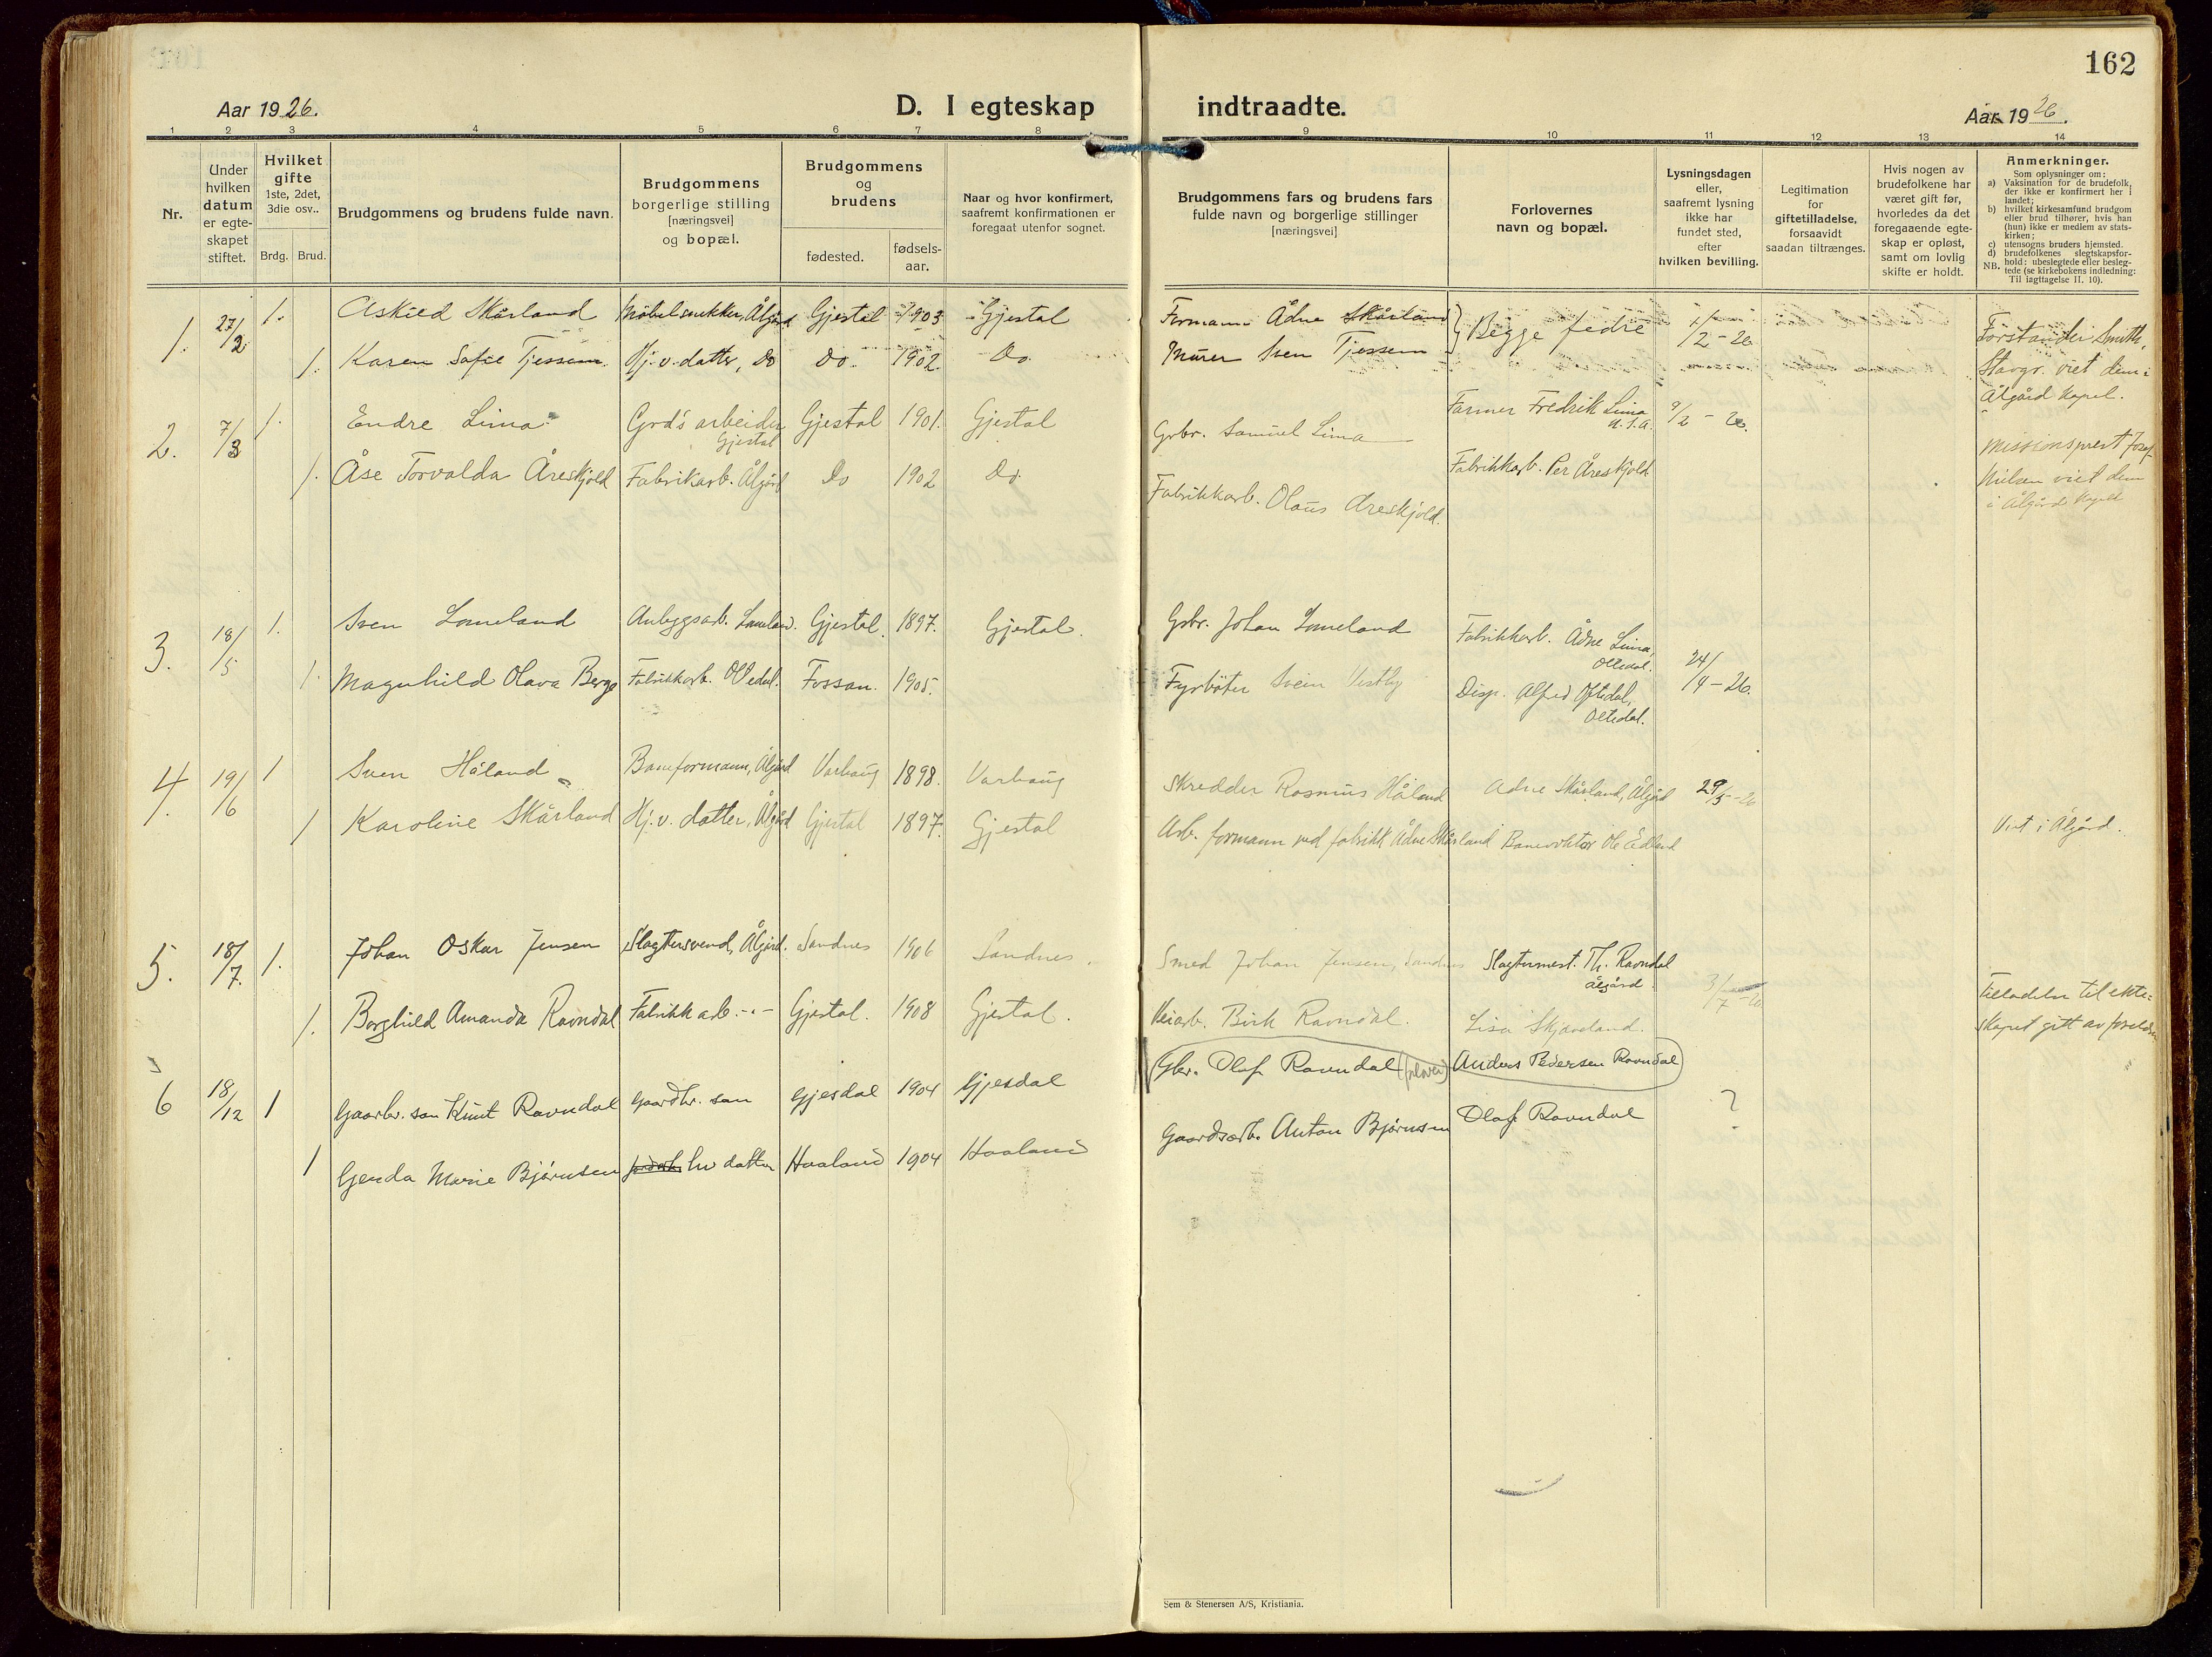 162
Aar 1926.
D. I egteskap indtraadte.
Aar 1926.
1 2 3 4 5 6 7 8 9 10 11 12 13 14
Nr.
Under
hvilken
datum
er egte-
skapet
stiftet.
Hvilket
gifte
1ste, 2det,
3die osv..
Brdg. Brud.
Brudgommens og brudens fulde navn.
Brudgommens
borgerlige stilling
[næringsvei]
og bopæl.
Brudgommens
og
brudens
fødested.
fødsels-
aar.
Naar og hvor konfirmert,
saafremt konfirmationen er
foregaat utenfor sognet.
Brudgommens fars og brudens fars
fulde navn og borgerlige stillinger
[næringsvei]
Forlovernes
navn og bopæl.
Lysningsdagen
eller,
saafremt lysning
ikke har
fundet sted,
efter
hvilken bevilling.
Legitimation
for
giftetilladelse,
forsaavidt
saadan tiltrænges.
Hvis nogen av
brudefolkene har
været gift før,
hvorledes da det
foregaaende egte-
skap er opløst,
samt om lovlig
skifte er holdt.
Anmerkninger.
Som oplysninger om:
a) Vaksination for de brudefolk,
der ikke er konfirmert her i
landet;
b) hvilket kirkesamfund brudgom
eller brud tilhører, hvis han
(hun) ikke er medlem av stats-
kirken;
c) utensogns bruders hjemsted.
d) brudefolkenes slegtskapsfor-
hold: ubeslegtede eller besleg-
NB. tede (se kirkebokens indledning:
Til iagttagelse II. 10).
1. 27/2 1. Askild Skårland Møbelsnekker, Ålgård Gjestal 1903 Gjestal Formann Ådne Skårland Begge fedre 2-26 Forstander Smith,
1. Karen Sofie Tjessem Hj.v. datter, Do Do. 1902. Do. Murer Sven Tjessem Stavgr. viet dem i
Ålgård kapel.
2. 7/3 1. Endre Lima Grds arbeider Gjestal Gjestal 1901. Gjestal Grbr. Samuel Lima Farmer Fredrik Lima U.S.A. 9/2 - 26. Missionsprest
1. Åse Torvalda Åreskjold Fabrikarb. Ålgård Do 1902 Do. Fabrikkarb. Olaus Areskjold. Fabrikkarb. Per Åreskjold Nielsen viet dem
i Ålgård kapel
3. 18/5 1. Sven Lomeland Anleggsarb. Gjestal. 1897. Gjestal. Grbr. Johan Lomeland Fabrikkarb. Ådne Lima, Oltedal. 24/4-26.
1. Magnhild Olava Berge Fabrikkarb. Oltedal. Fossan. 1905. Fyrbøter Svein Vestly Disp. Alfred Oftedal, Oltedal.
4. 19/6 1 Sven Håland Baneformann, Ålgård Varhaug 1898. Varhaug Skredder Rasmus Håland Adne Skårland, Ålgård 29/5-26
1 Karoline Skårland Hj.v. datter, Ålgård Gjestal 1897. Gjestal Arb. formann ved fabrikk Ådne Skårland Banevokter Ole Edland Viet i Ålgård.
5. 18/7. 1. Johan Oskar Jensen Slagtersvend, Ålgård. Sandnes 1906 Sandnes. Smed Johan Jensen, Sandnes Slagtermest. Th. Ravndal Ålgård. 3/7-26
1. Borghild Amanda Ravndal Fabrikkarb. -"- Gjestal. 1908 Gjestal. Veiarb. Birk Ravndal. Lisa Skjæveland. Tilladelse til ekte-
skapet gitt av foreldre
6 18/12 1 Gaarbr. søn Knut Ravndal Gaardbr. søn Gjesdal 1904 Gjesdal Gbr. Olaf Ravndal Anders Pedersen Ravndal ?
1 Gjenda Marie Bjørnsen hv datter Haaland 1904 Haaland Gaardsarb. Anton Bjørnsen Olaf Ravndal
Sem & Stenersen A/S, Kristiania.